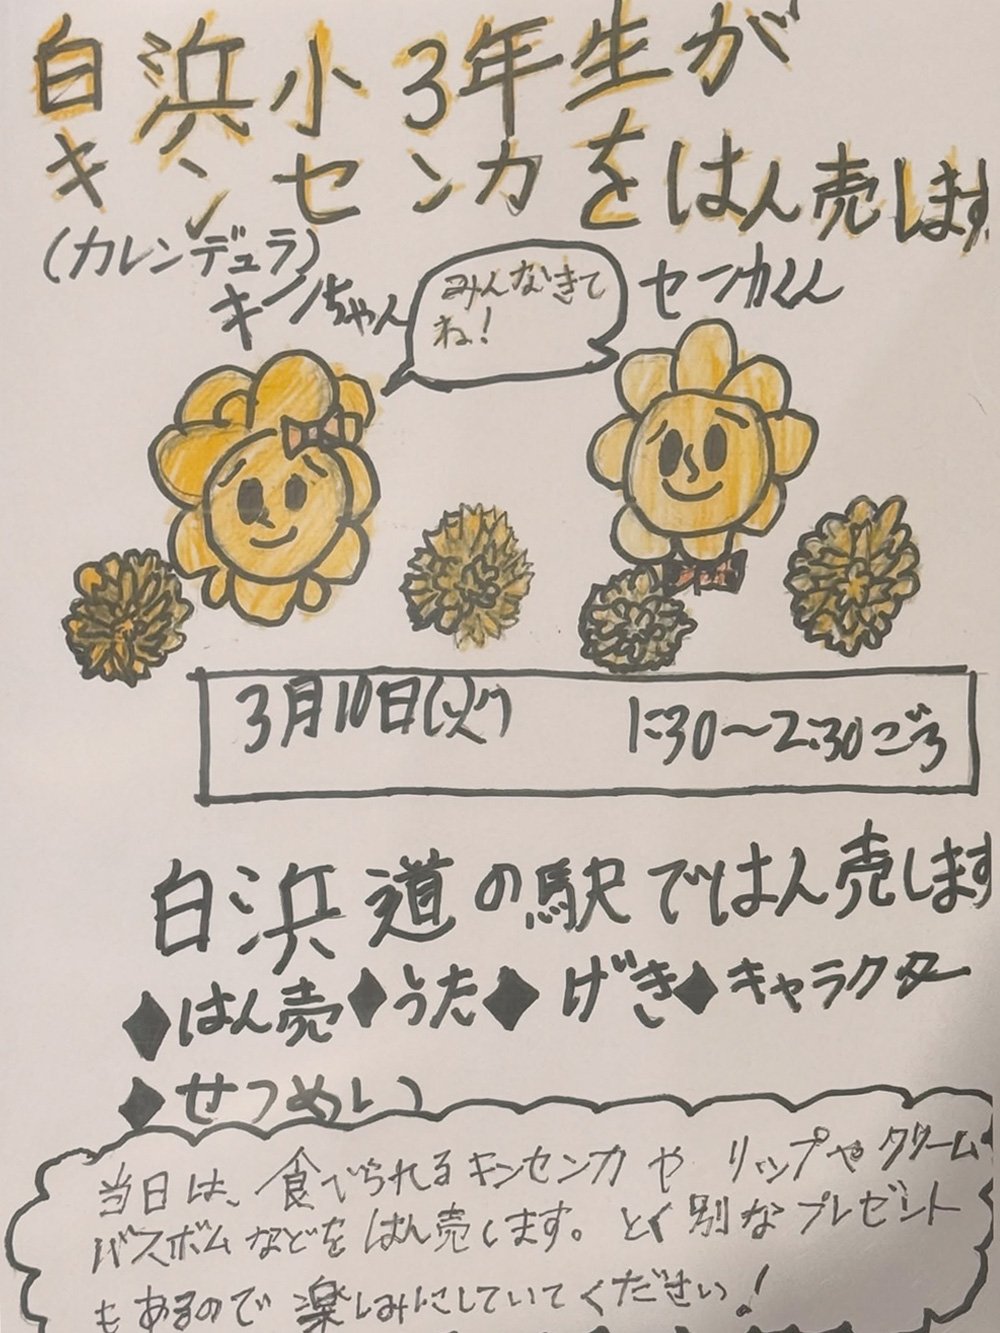 白浜小3年生が
キンセンカをはん売します
(カレンデュラ)
キンちゃん
みんなきて
ね!
センカくん
3月10日(火) 1:30～2:30ごろ
白浜道の駅ではん売します
◆はん売◆うた◆げき◆キャラクター
◆せつめい
当日は、食べられるキンセンカや リップやクリーム
バスボムなどをはん売します。とく別なプレゼント
もあるので楽しみにしていてください!